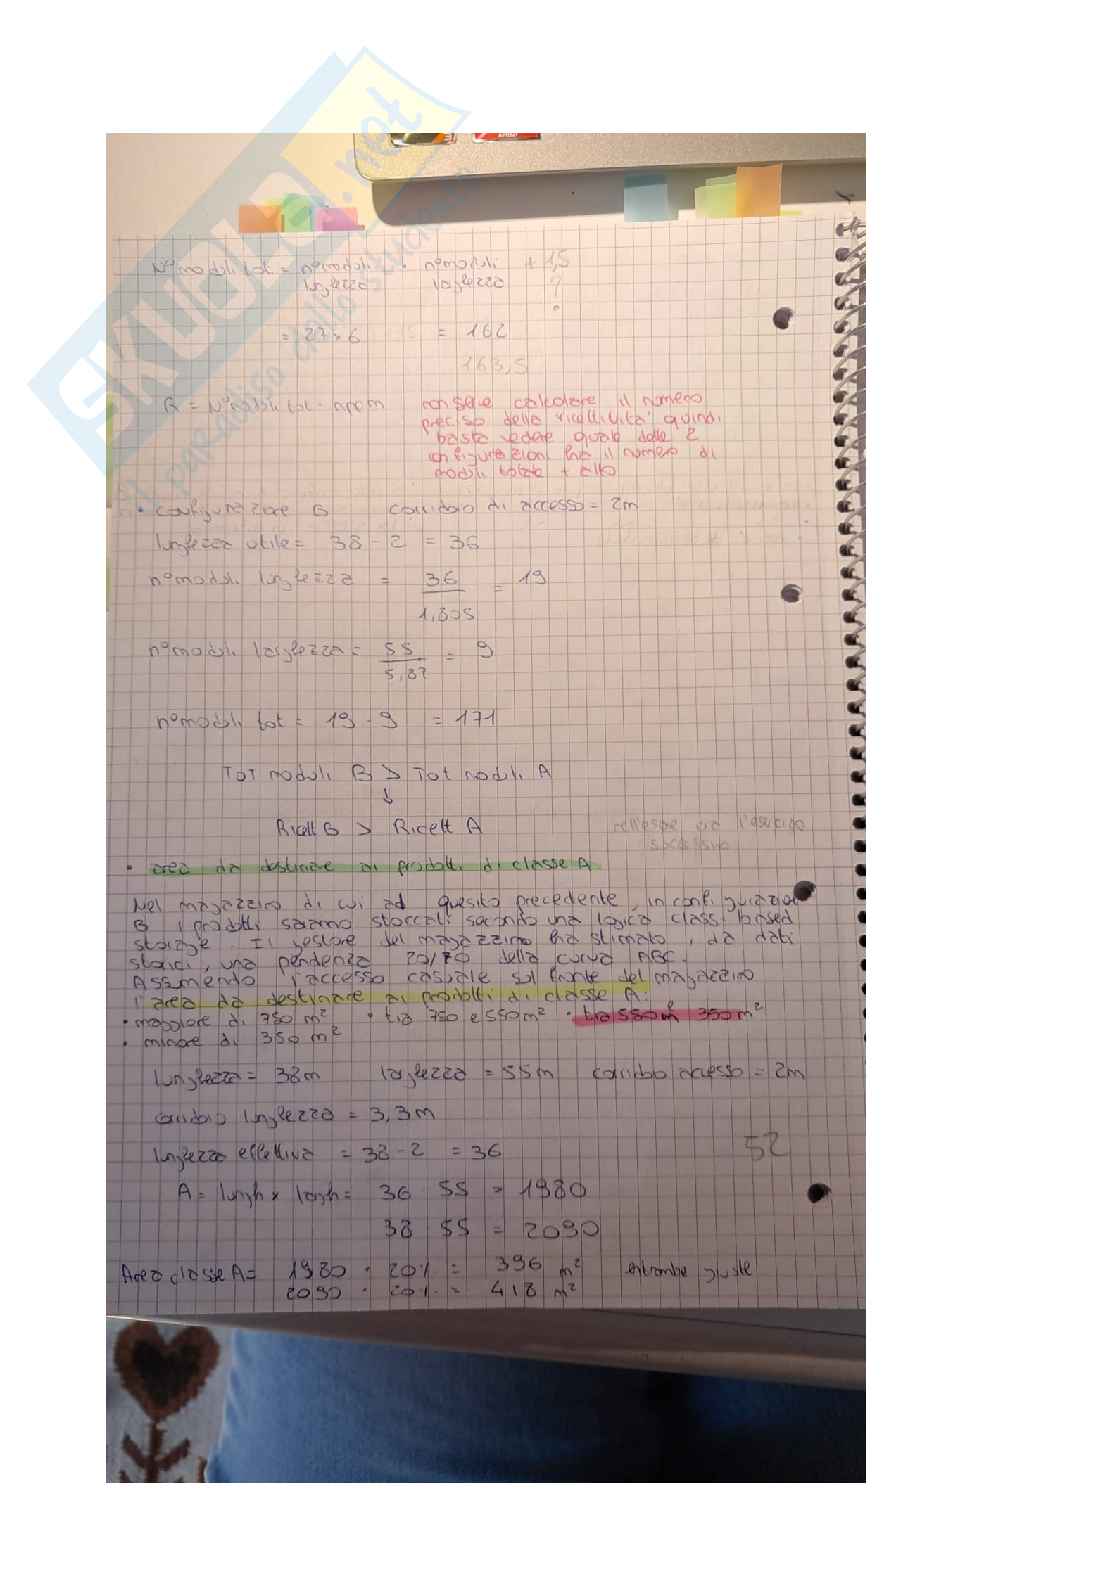 SKUOLA.net
il paradiso dello studente
N° moduli tot = n° moduli · n° moduli + 1,5
lunghezza larghezza ?
= 27 · 6 = 162
163,5
R = N° moduli tot · npam non serve calcolare il numero
preciso della ricettività quindi
basta vedere quale delle 2
configurazioni ha il numero di
moduli totale + alto
• configurazione B corridoio di accesso = 2m
lunghezza utile = 38 - 2 = 36
n° moduli lunghezza = 36 / 1,875 = 19
n° moduli larghezza = 55 / 5,87 = 9
n° moduli tot = 19 · 9 = 171
TOT moduli B > Tot moduli A
↓
Ricett B > Ricett A
• area da destinare ai prodotti di classe A
Nel magazzino di cui ad quesito precedente, in configurazione
B i prodotti saranno stoccati secondo una logica class based
storage. Il gestore del magazzino ha stimato, da dati
storici, una pendenza 20/70 della curva ABC.
Assumendo l'accesso casuale sul fronte del magazzino
l'area da destinare ai prodotti di classe A:
• maggiore di 750 m² • tra 750 e 550 m² • tra 550 e 350 m²
• minore di 350 m²
lunghezza = 38m larghezza = 55m corridoio accesso = 2m
corridoio lunghezza = 3,3m
lunghezza effettiva = 38 - 2 = 36
52
A = lungh x largh = 36 · 55 = 1980
38 · 55 = 2090
Area classe A = 1980 · 20% = 396 m² entrambe giuste
2090 · 20% = 418 m²